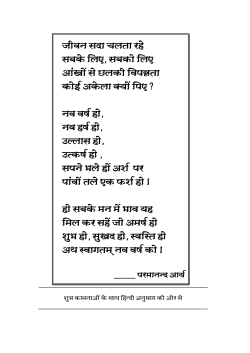 जीवन सदा चलता रहे
सबके लिए, सबको लिए
आंखों से छलकी विपन्नता
कोई अकेला क्यों पिए ?
नव वर्ष हो,
नव हर्ष हो,
उल्लास हो,
उत्कर्ष हो ,
सपने भले हों अर्श पर
पांवों तले एक फर्श हो ।
हो सबके मन में भाव यह
मिल कर सहें जो अमर्ष हो
शुभ हो, सुखद हो, स्वस्ति हो
अथ स्वागतम् नव वर्ष को ।
_____ परमानन्द आर्य
शुभ कामनाओं के साथ हिन्दी अनुभाग की ओर से